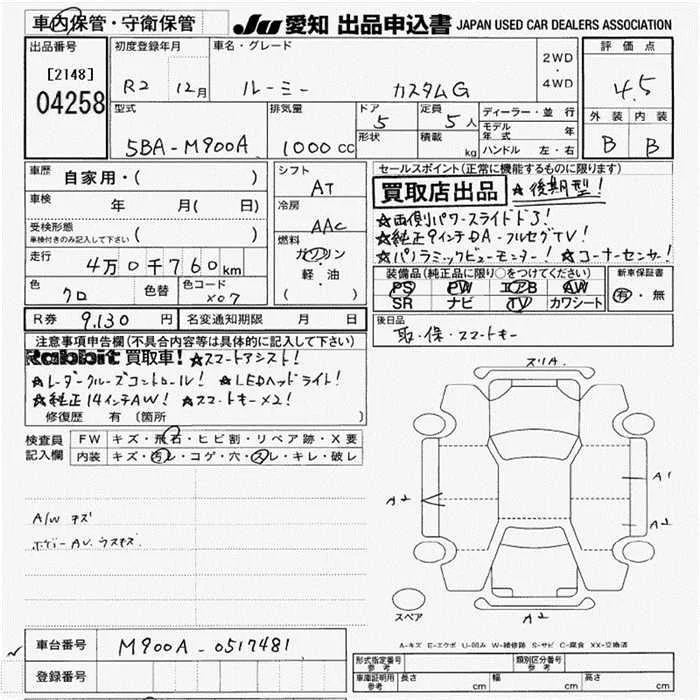 車内保管・守衛保管
JU 愛知 出品申込書 JAPAN USED CAR DEALERS ASSOCIATION
出品番号 初度登録年月 車名・グレード 評価点
[2148] R2 12月 ルーミー カスタムG 2WD・4WD 4.5
04258
型式 排気量 ドア 定員 ディーラー・並行 外装 内装
5BA-M900A 1000cc 5 5人 モデル年式 年 B B
形状 積載 kg ハンドル 左・右
車歴 自家用・( ) シフト AT
車検 年 月( 日) 冷房 AAC
受検形態 ( )
車検付きのみ記入して下さい
燃料 ガソリン・軽・油 ( )
走行 4万0千760km
色 クロ 色替 色コード X07
R券 9,130円 名変通知期限 月 日
セールスポイント(正常に機能するものに限ります)
買取店出品 ★後期型!
★両側パワースライドドア!
★純正9インチDA-フルセグTV!
★パノラミックビューモニター! ★コーナーセンサー!
装備品(純正品に限り○をつけてください) 新車保証書
PS PW エアB AW 有・無
SR ナビ TV カワシート
後日品
取・保・スマートキー
注意事項申告欄(不具合内容等は具体的に記入して下さい)
Rabbit 買取車! ★スマートアシスト!
★レーダークルーズコントロール! ★LEDヘッドライト!
★純正14インチAW! ★スマートキー×2!
修復歴 有 (箇所 )
検査員記入欄 FW キズ・飛石・ヒビ割・リペア跡・X要
内装 キズ・汚レ・コゲ・穴・スレ・キレ・破レ
A/W キズ
ボデーAU. ウスキズ
スリA.
A2
A1
A2
A2
スペア
A-キズ E-エクボ U-凹み W-補修跡 S-サビ C-腐食 XX-交換済
車台番号 M900A-0517481
登録番号
形式指定番号 参考 類別区分番号 参考
車庫証明用 参考 長さ cm 幅 cm 高さ cm